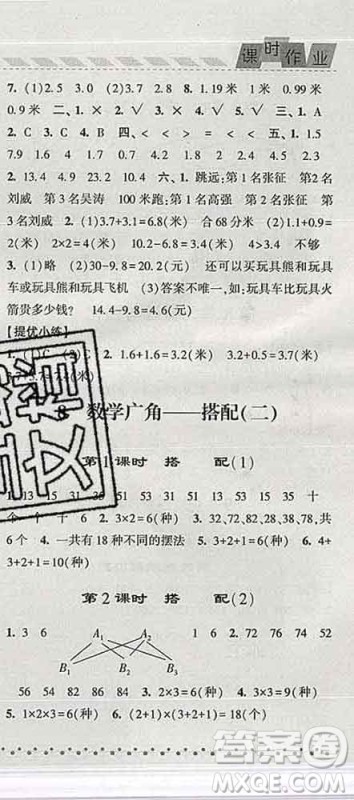 课时作业
7. (1)2.5 3.0 (2)2.5 8. 1.19米 0.90米
0.9米 二、1. × 2. √ 3. × 4. √ 5. √ 三、1. A
2. C 3. B 4. C 四、< < > < 五、1. 1.5
2. 13.4 4.9 23.2 10.4 六、1. 跳远:第1名张征 第2名
刘威 第3名吴涛 100米跑:第1名高强 第2名张征 第
3名刘威 2. (1)3.7+3.1=6.8(米) 合68分米 (2)1.1+0.9=
2(米) 2×2=4(米) 10.2-6.8=3.4(米) 4>3.4 不够
3. (1)略 (2)30-9.8=20.2(元) 可以买玩具熊和玩具
车或玩具熊和玩具飞机 (3)答案不唯一,如:玩具车比玩具火
箭贵多少钱? 14.4-9.8=4.6(元)
[提优小练]
1.6+1.6=3.2(米) 3.2+0.5=3.7(米)
8 数学广角——搭配(二)
第1课时 搭 配(1)
1. 13 15 31 35 51 53 31 51 53 15 35 十
个 个 十 6 2. 3×2=6(种) 3. 32,72,82,28,38,78,共
6个 4. 一共有18种不同的摆法 5. 3+2+1=6(种) 6. 4+
3+2+1=10(种)
第2课时 搭 配(2)
1. 3 6 A1 A2 6 2. 72 74 76 78 52
B1 B2 B3
56 54 58 82 84 86 3. 2×3=6(种) 4. 2×3=6(种)
5. 1×2×3=6(种) 6. (2+1)×(3+2+1)=18(个)
答案圈
MXQE.COM